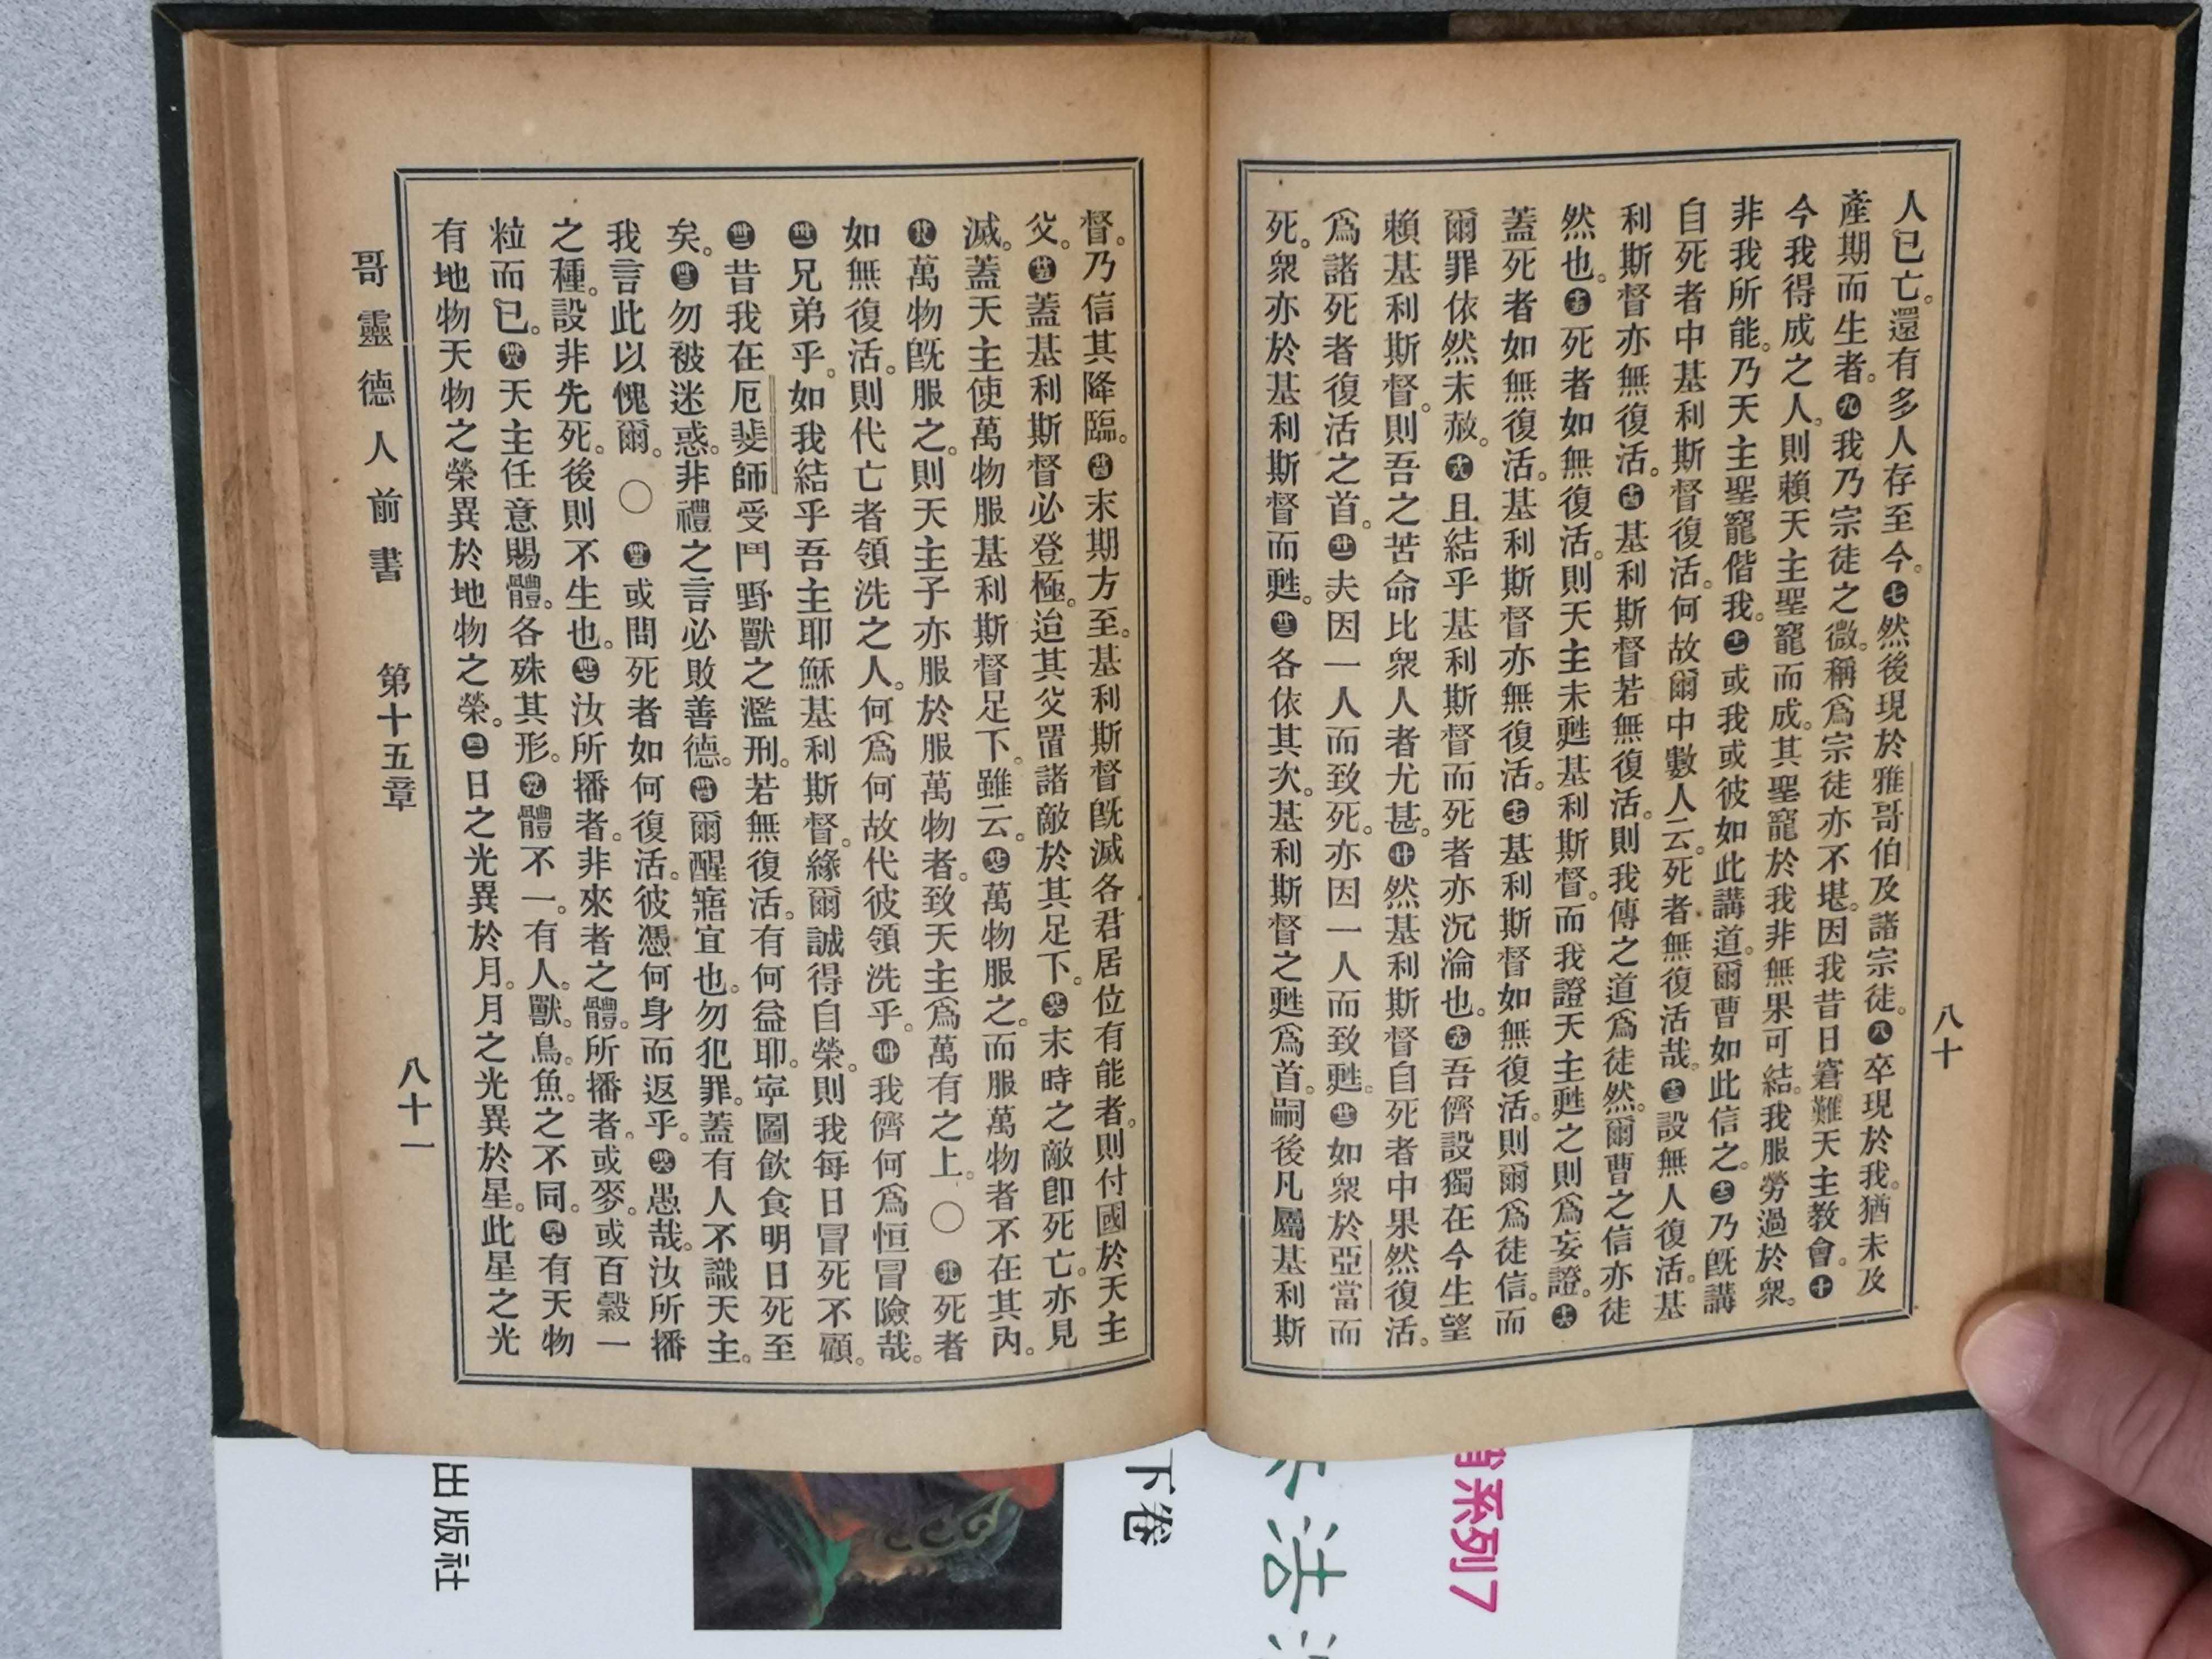 八十
人已亡。還有多人存至今。七然後現於雅哥伯及諸宗徒。八卒現於我。猶未及
產期而生者。九我乃宗徒之微。稱爲宗徒亦不堪。因我昔日窘難天主教會。十
今我得成之人。則賴天主聖寵而成。其聖寵於我非無果可結。我服勞過於衆。
非我所能。乃天主聖寵偕我。十一或我或彼如此講道。爾曹如此信之。十二乃旣講
自死者中基利斯督復活。何故爾中數人云。死者無復活哉。十三設無人復活。基
利斯督亦無復活。十四基利斯督若無復活。則我傳之道爲徒然。爾曹之信亦徒
然也。十五死者如無復活。則天主未甦基利斯督。而我證天主甦之則爲妄證。十六
蓋死者如無復活。基利斯督亦無復活。十七基利斯督如無復活。則爾爲徒信。而
爾罪依然未赦。十八且結乎基利斯督而死者亦沉淪也。十九吾儕設獨在今生望
賴基利斯督。則吾之苦命比衆人者尤甚。二十然基利斯督自死者中果然復活。
爲諸死者復活之首。廿一夫因一人而致死。亦因一人而致甦。廿二如衆於亞當而
死。衆亦於基利斯督而甦。廿三各依其次。基利斯督之甦爲首。嗣後凡屬基利斯
督。乃信其降臨。廿四末期方至。基利斯督旣滅各君居位有能者。則付國於天主
父。廿五蓋基利斯督必登極。迨其父置諸敵於其足下。廿六末時之敵卽死亡。亦見
滅。蓋天主使萬物服基利斯督足下。雖云。廿七萬物服之。而服萬物者不在其內。
廿八萬物旣服之。則天主子亦服於服萬物者。致天主爲萬有之上。〇廿九死者
如無復活。則代亡者領洗之人。何爲何故代彼領洗乎。卅我儕何爲恒冒險哉。
卅一兄弟乎。如我結乎吾主耶穌基利斯督。緣爾誠得自榮。則我每日冒死不顧。
卅二昔我在厄斐師受鬥野獸之濫刑。若無復活。有何益耶。寧圖飲食明日死至
矣。卅三勿被迷惑。非禮之言必敗善德。卅四爾醒寤宜也。勿犯罪。蓋有人不識天主。
我言此以愧爾。〇卅五或問死者如何復活。彼憑何身而返乎。卅六愚哉。汝所播
之種。設非先死。後則不生也。卅七汝所播者。非來者之體。所播者。或麥。或百穀一
粒而已。卅八天主任意賜體。各殊其形。卅九體不一。有人。獸。鳥。魚。之不同。四十有天物
有地物天物之榮異於地物之榮。四一日之光異於月。月之光異於星。此星之光
哥靈德人前書 第十五章 八十一
出版社
下卷
系列7